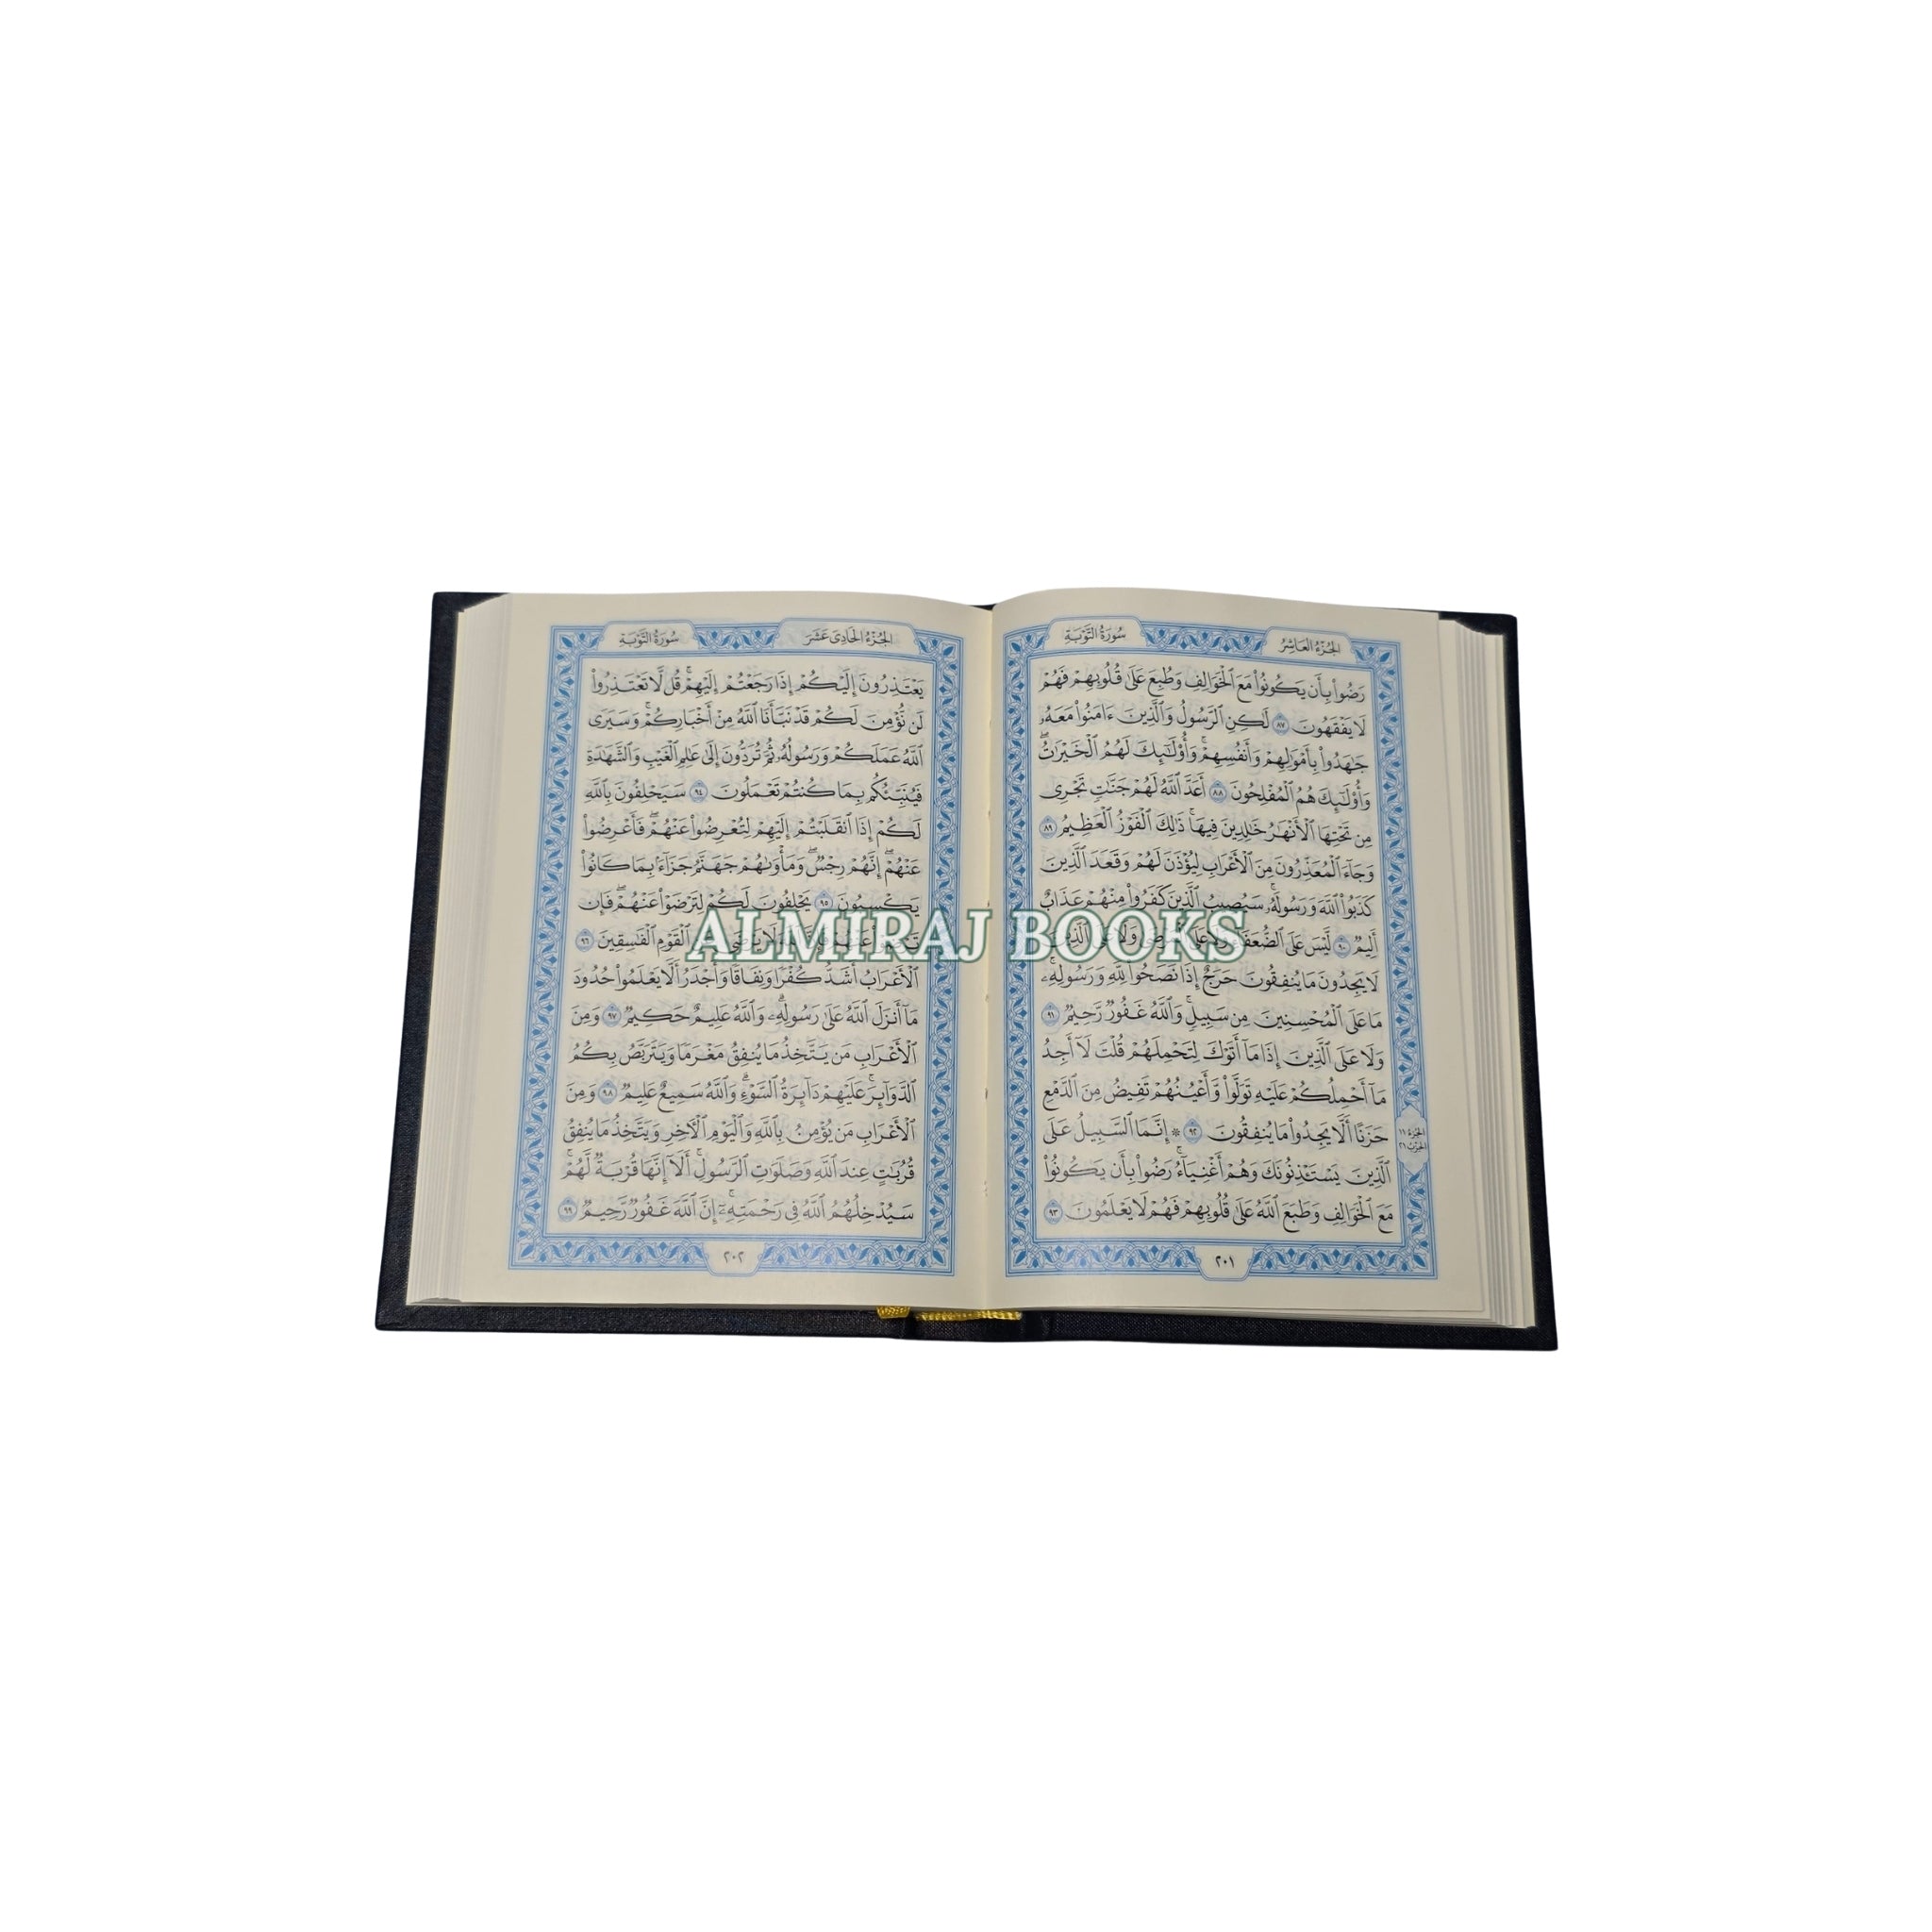 الجزء العاشر
سورة التوبة
رَضُوا۟ بِأَن يَكُونُوا۟ مَعَ ٱلْخَوَالِفِ وَطُبِعَ عَلَىٰ قُلُوبِهِمْ فَهُمْ
لَا يَفْقَهُونَ ٨٧ لَٰكِنِ ٱلرَّسُولُ وَٱلَّذِينَ ءَامَنُوا۟ مَعَهُۥ
جَٰهَدُوا۟ بِأَمْوَٰلِهِمْ وَأَنفُسِهِمْ ۚ وَأُو۟لَٰٓئِكَ لَهُمُ ٱلْخَيْرَٰتُ ۖ
وَأُو۟لَٰٓئِكَ هُمُ ٱلْمُفْلِحُونَ ٨٨ أَعَدَّ ٱللَّهُ لَهُمْ جَنَّٰتٍ تَجْرِى
مِن تَحْتِهَا ٱلْأَنْهَٰرُ خَٰلِدِينَ فِيهَا ۚ ذَٰلِكَ ٱلْفَوْزُ ٱلْعَظِيمُ ٨٩
وَجَآءَ ٱلْمُعَذِّرُونَ مِنَ ٱلْأَعْرَابِ لِيُؤْذَنَ لَهُمْ وَقَعَدَ ٱلَّذِينَ
كَذَبُوا۟ ٱللَّهَ وَرَسُولَهُۥ ۚ سَيُصِيبُ ٱلَّذِينَ كَفَرُوا۟ مِنْهُمْ عَذَابٌ
أَلِيمٌ ٩٠ لَّيْسَ عَلَى ٱلضُّعَفَآءِ وَلَا عَلَى ٱلْمَرْضَىٰ وَلَا عَلَى ٱلَّذِينَ
لَا يَجِدُونَ مَا يُنفِقُونَ حَرَجٌ إِذَا نَصَحُوا۟ لِلَّهِ وَرَسُولِهِۦ ۚ
مَا عَلَى ٱلْمُحْسِنِينَ مِن سَبِيلٍ ۚ وَٱللَّهُ غَفُورٌ رَّحِيمٌ ٩١
وَلَا عَلَى ٱلَّذِينَ إِذَا مَآ أَتَوْكَ لِتَحْمِلَهُمْ قُلْتَ لَآ أَجِدُ
مَآ أَحْمِلُكُمْ عَلَيْهِ تَوَلَّوا۟ وَّأَعْيُنُهُمْ تَفِيضُ مِنَ ٱلدَّمْعِ
حَزَنًا أَلَّا يَجِدُوا۟ مَا يُنفِقُونَ ٩٢ ۞ إِنَّمَا ٱلسَّبِيلُ عَلَى
ٱلَّذِينَ يَسْتَـْٔذِنُونَكَ وَهُمْ أَغْنِيَآءُ ۚ رَضُوا۟ بِأَن يَكُونُوا۟
مَعَ ٱلْخَوَالِفِ وَطَبَعَ ٱللَّهُ عَلَىٰ قُلُوبِهِمْ فَهُمْ لَا يَعْلَمُونَ ٩٣
الجزء ١١
الحزب ٢١
٢٠١
الجزء الحادى عشر
سورة التوبة
يَعْتَذِرُونَ إِلَيْكُمْ إِذَا رَجَعْتُمْ إِلَيْهِمْ ۚ قُل لَّا تَعْتَذِرُوا۟
لَن نُّؤْمِنَ لَكُمْ قَدْ نَبَّأَنَا ٱللَّهُ مِنْ أَخْبَارِكُمْ ۚ وَسَيَرَى
ٱللَّهُ عَمَلَكُمْ وَرَسُولُهُۥ ثُمَّ تُرَدُّونَ إِلَىٰ عَٰلِمِ ٱلْغَيْبِ وَٱلشَّهَٰدَةِ
فَيُنَبِّئُكُم بِمَا كُنتُمْ تَعْمَلُونَ ٩٤ سَيَحْلِفُونَ بِٱللَّهِ
لَكُمْ إِذَا ٱنقَلَبْتُمْ إِلَيْهِمْ لِتُعْرِضُوا۟ عَنْهُمْ ۖ فَأَعْرِضُوا۟
عَنْهُمْ ۖ إِنَّهُمْ رِجْسٌ ۖ وَمَأْوَىٰهُمْ جَهَنَّمُ جَزَآءًۢ بِمَا كَانُوا۟
يَكْسِبُونَ ٩٥ يَحْلِفُونَ لَكُمْ لِتَرْضَوْا۟ عَنْهُمْ ۖ فَإِن
تَرْضَوْا۟ عَنْهُمْ فَإِنَّ ٱللَّهَ لَا يَرْضَىٰ عَنِ ٱلْقَوْمِ ٱلْفَٰسِقِينَ ٩٦
ٱلْأَعْرَابُ أَشَدُّ كُفْرًا وَنِفَاقًا وَأَجْدَرُ أَلَّا يَعْلَمُوا۟ حُدُودَ
مَآ أَنزَلَ ٱللَّهُ عَلَىٰ رَسُولِهِۦ ۗ وَٱللَّهُ عَلِيمٌ حَكِيمٌ ٩٧ وَمِنَ
ٱلْأَعْرَابِ مَن يَتَّخِذُ مَا يُنفِقُ مَغْرَمًا وَيَتَرَبَّصُ بِكُمُ
ٱلدَّوَآئِرَ ۚ عَلَيْهِمْ دَآئِرَةُ ٱلسَّوْءِ ۗ وَٱللَّهُ سَمِيعٌ عَلِيمٌ ٩٨ وَمِنَ
ٱلْأَعْرَابِ مَن يُؤْمِنُ بِٱللَّهِ وَٱلْيَوْمِ ٱلْءَاخِرِ وَيَتَّخِذُ مَا يُنفِقُ
قُرُبَٰتٍ عِندَ ٱللَّهِ وَصَلَوَٰتِ ٱلرَّسُولِ ۚ أَلَآ إِنَّهَا قُرْبَةٌ لَّهُمْ ۚ
سَيُدْخِلُهُمُ ٱللَّهُ فِى رَحْمَتِهِۦٓ ۗ إِنَّ ٱللَّهَ غَفُورٌ رَّحِيمٌ ٩٩
٢٠٢
ALMIRAJ BOOKS